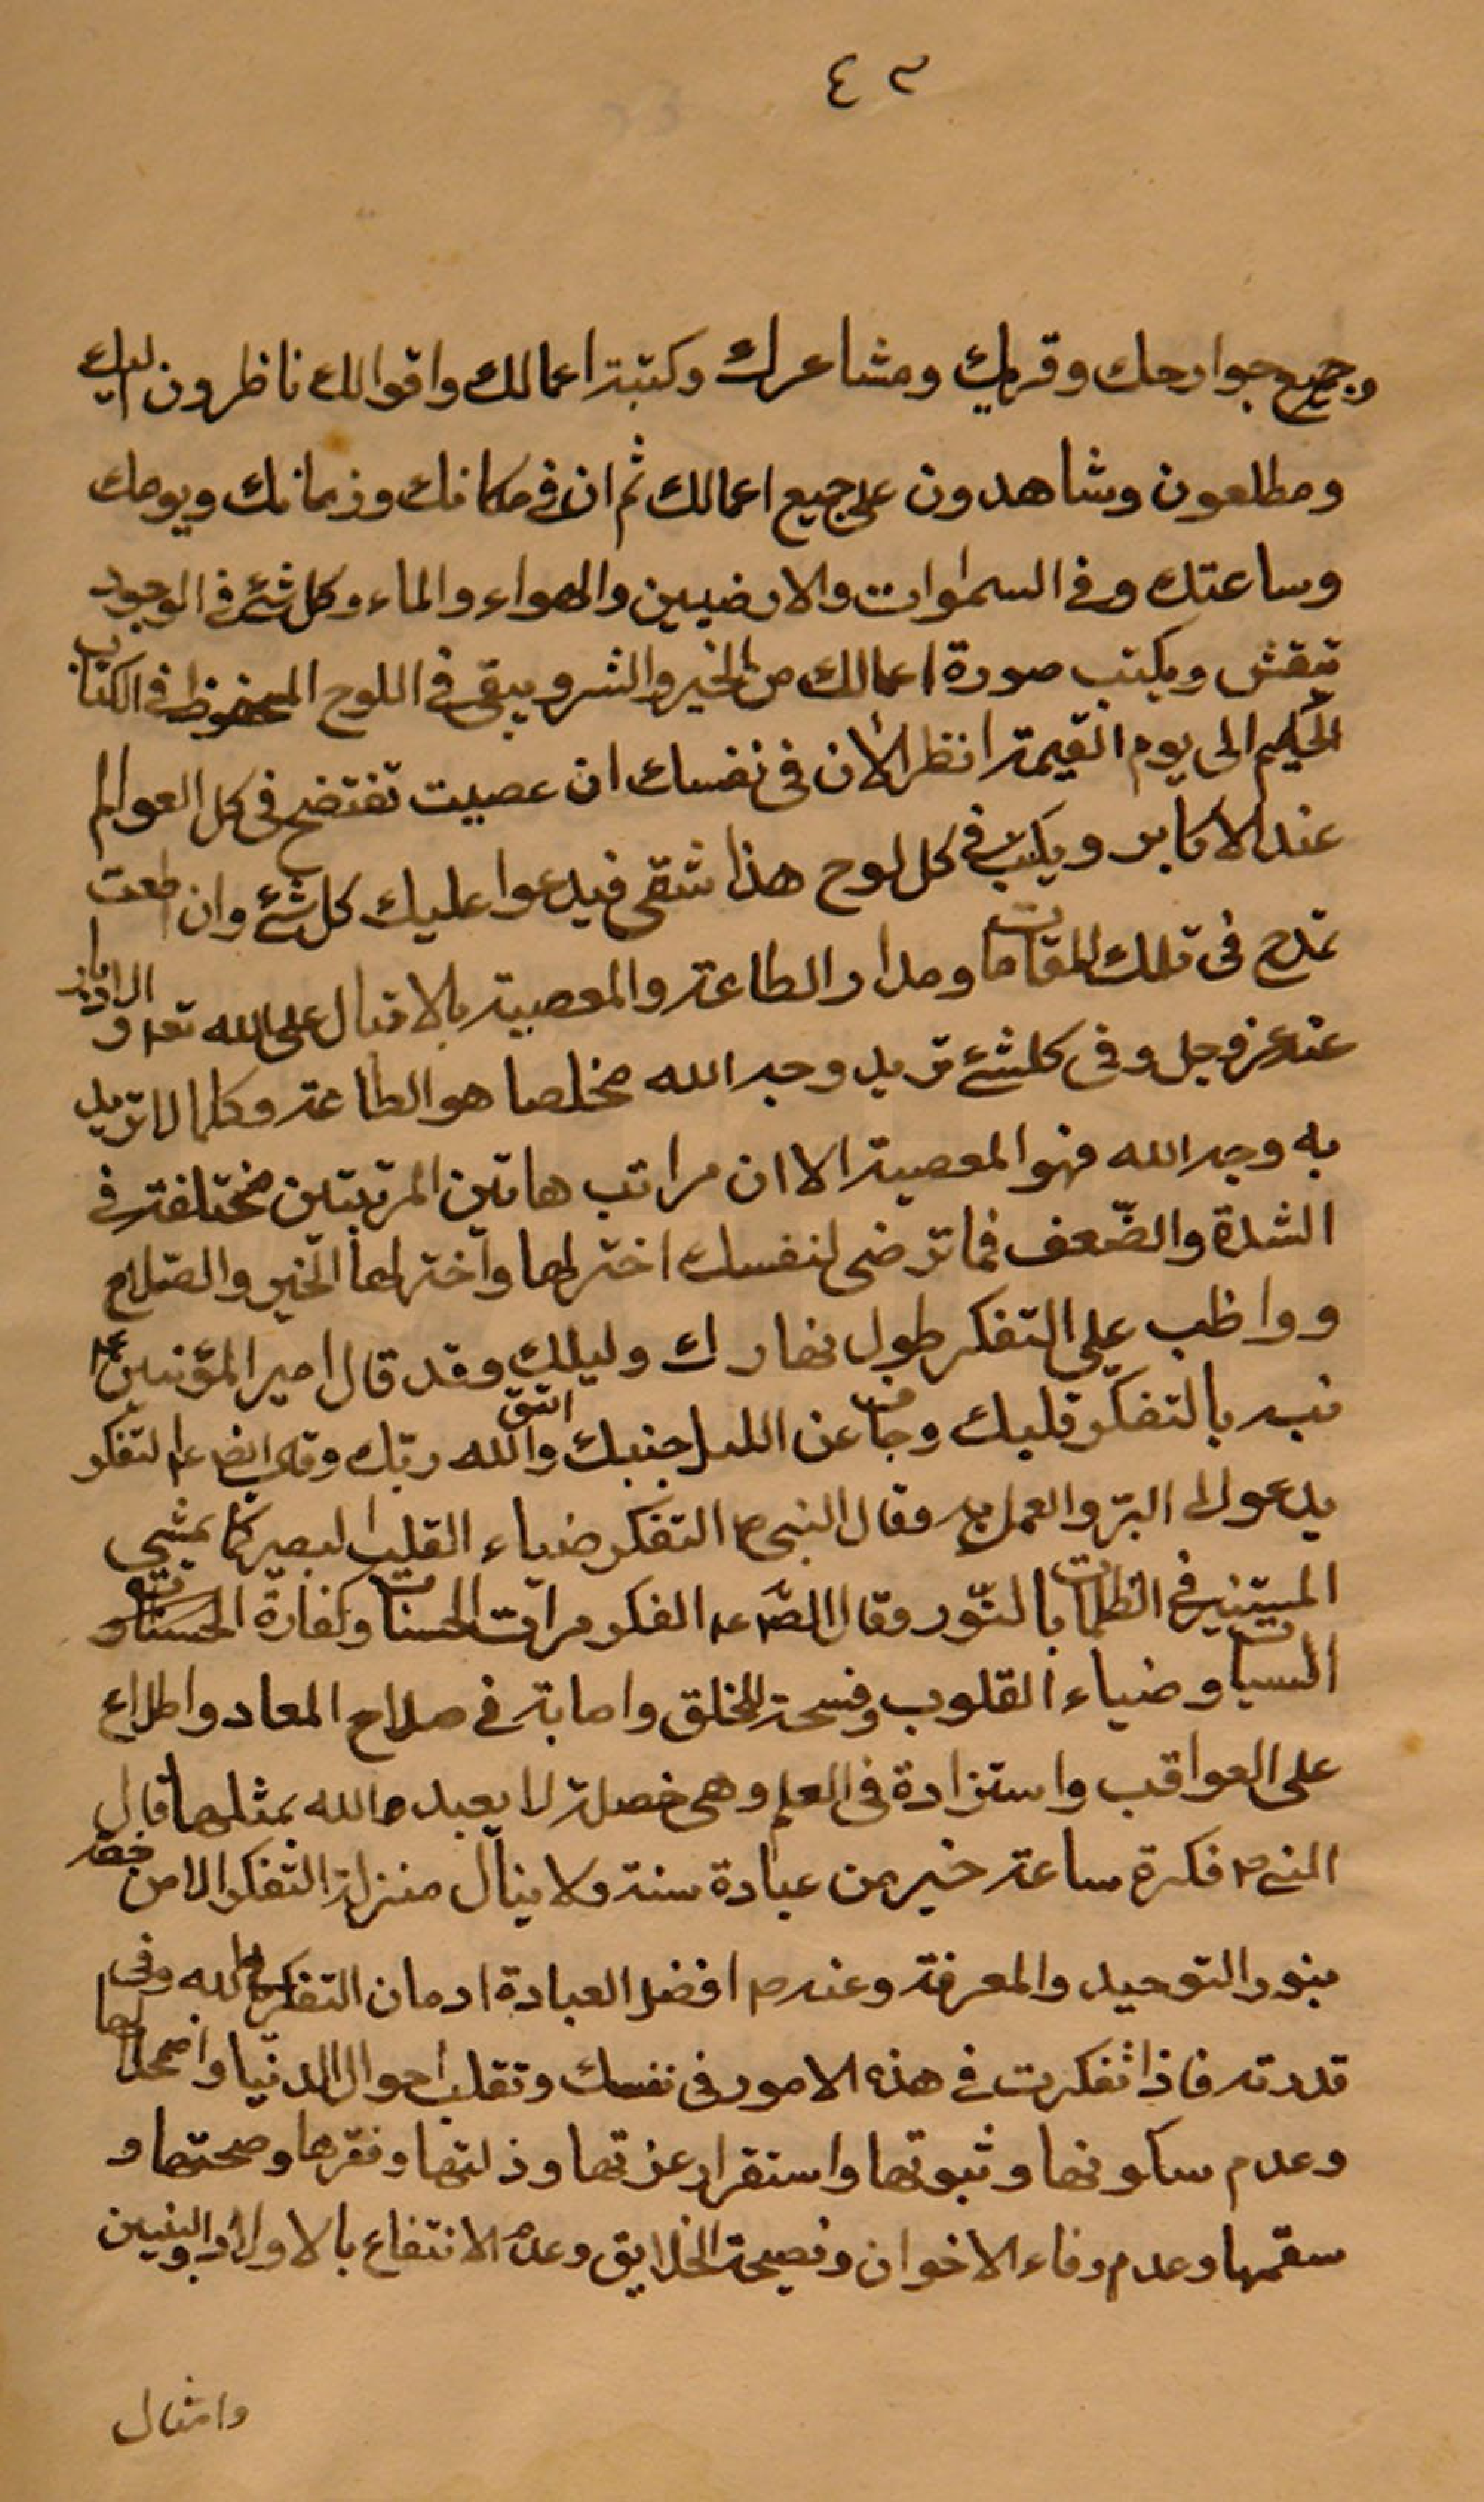 ٤٣
وجميع جوارحك وقريك ومشاعرك وكتبة اعمالك واقوالك ناظرون اليك
ومطلعون وشاهدون على جميع اعمالك ثم ان في مكانك وزمانك ويومك
وساعتك وفى السموات والارضيين والهواء والماء وكل شئ فى الوجود
تنقش ويكتب صورة اعمالك من الخير والشر ويبقى فى اللوح المحفوظ فى الكتاب
الحكيم الى يوم القيمة انظر الان فى نفسك ان عصيت تفتضح فى كل العوالم
عند الاكابر ويكتب فى كل لوح هذا شقى فيدعوا عليك كل شئ وان اطعت
تمدح فى تلك المقامات ومدار الطاعة والمعصية بالاقبال على الله تعه والادبار
عنه عز وجل وفى كلشئ تريد وجه الله مخلصا هو الطاعة وكلما لا تريد
به وجه الله فهو المعصية الا ان مراتب هاتين المرتبتين مختلفة فى
الشدة والضّعف فما ترضى لنفسك اخترلها واخترلها الخير والصّلاح
وواظب على التفكر طول نهارك وليلك وقد قال امير المؤمنين عم
نبه بالتفكر قلبك وجاف عن الليل جنبك واتق الله ربّك وقال ايضا عم التفكر
يدعو الى البرّ والعمل به وقال النبى ص التفكر ضياء القلب البصير كما يمشى
المستنير فى الظلمات بالنّور وقال الصّ عم الفكر مرات الحسنات وكفارة الحسنات و
السيات وضياء القلوب وفسحة للخلق واصابة فى صلاح المعاد واطلاع
على العواقب واستزادة فى العلم وهى خصلة لا يعبد الله بمثلها قال
النبى ص فكرة ساعة خير من عبادة سنة ولا ينال منزلة التفكر الا من خصه
بنور التوحيد والمعرفة وعنه ص افضل العبادة ادمان التفكر فى الله وفى
قدرته فاذا تفكرت فى هذه الامور فى نفسك وتقلب احوال الدنيا واضمحلالها
وعدم سكونها وثبوتها واستقرار عزتها وذلتها وفقرها وصحتها و
سقمها وعدم وفاء الاخوان ونصيحة الخلايق وعدم الانتفاع بالاولاد والبنين
وامثال